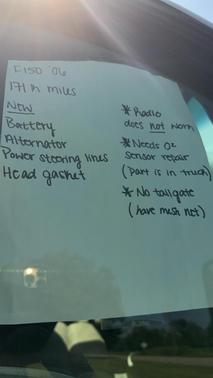 F150 '06
171 K miles
NEW
Battery
Alternator
Power steering lines
Head gasket
* Radio
does not work
* Needs O2
sensor repair
(part is in truck)
* No tailgate
(have mesh net)